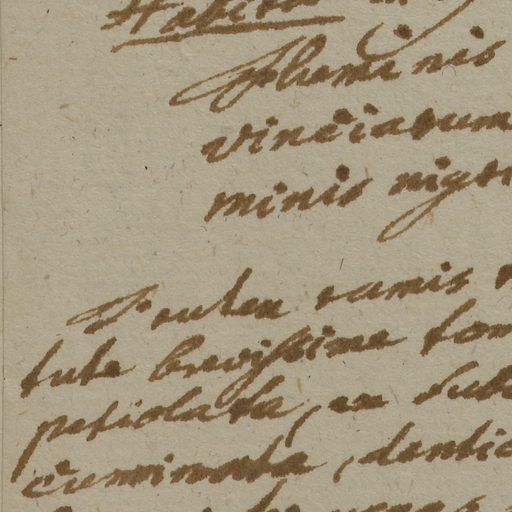 Habitat in
fluminis
vinciarum
minis nigr
Frutex ramis
tute brevissime tom
petiolata, ex sub
cuminata, dentic